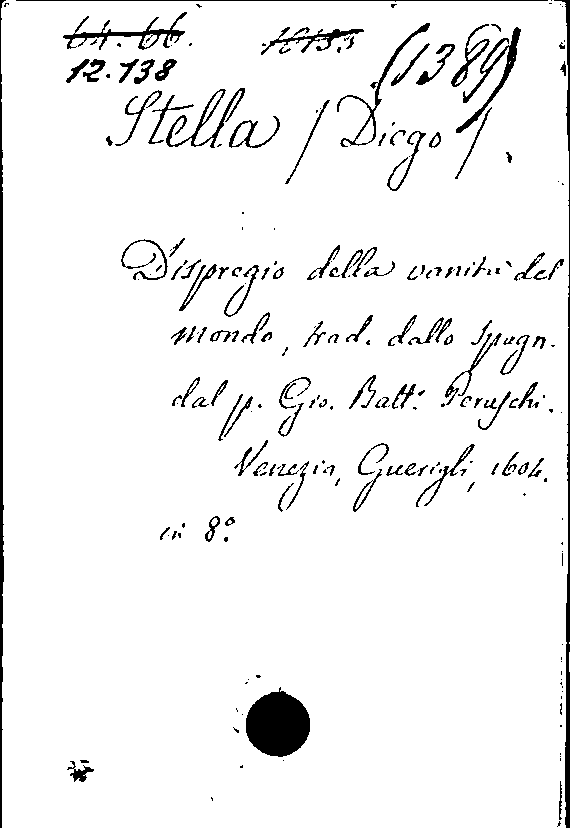 64.66. 18133 (1389)
12.138
Stella / Diego /.
Dispregio della vanità del
mondo, trad. dallo spagn.
dal p. Gio. Batt.ª Peruschi.
Venezia, Guerigli, 1604.
in 8.º